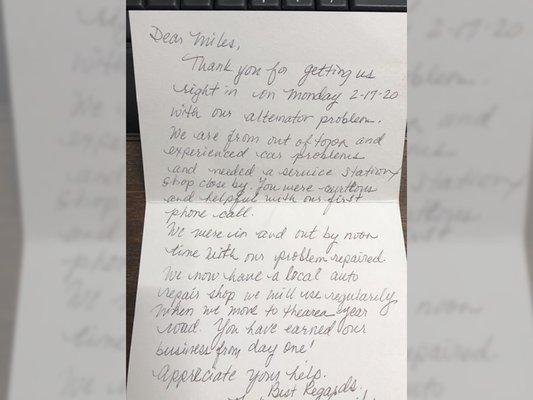 Dear Miles,
Thank you for getting us
right in on Monday 2-17-20
with our alternator problem.
We are from out of town and
experienced car problems
and needed a service station/
shop close by. You were curtious
and helpful with our first
phone call.
We were in and out by noon
time with our problem repaired.
We now have a local auto
repair shop we will use regularily
when we move to the area year
roud. You have earned our
business from day one!
Appreciate your help.
Best Regards.